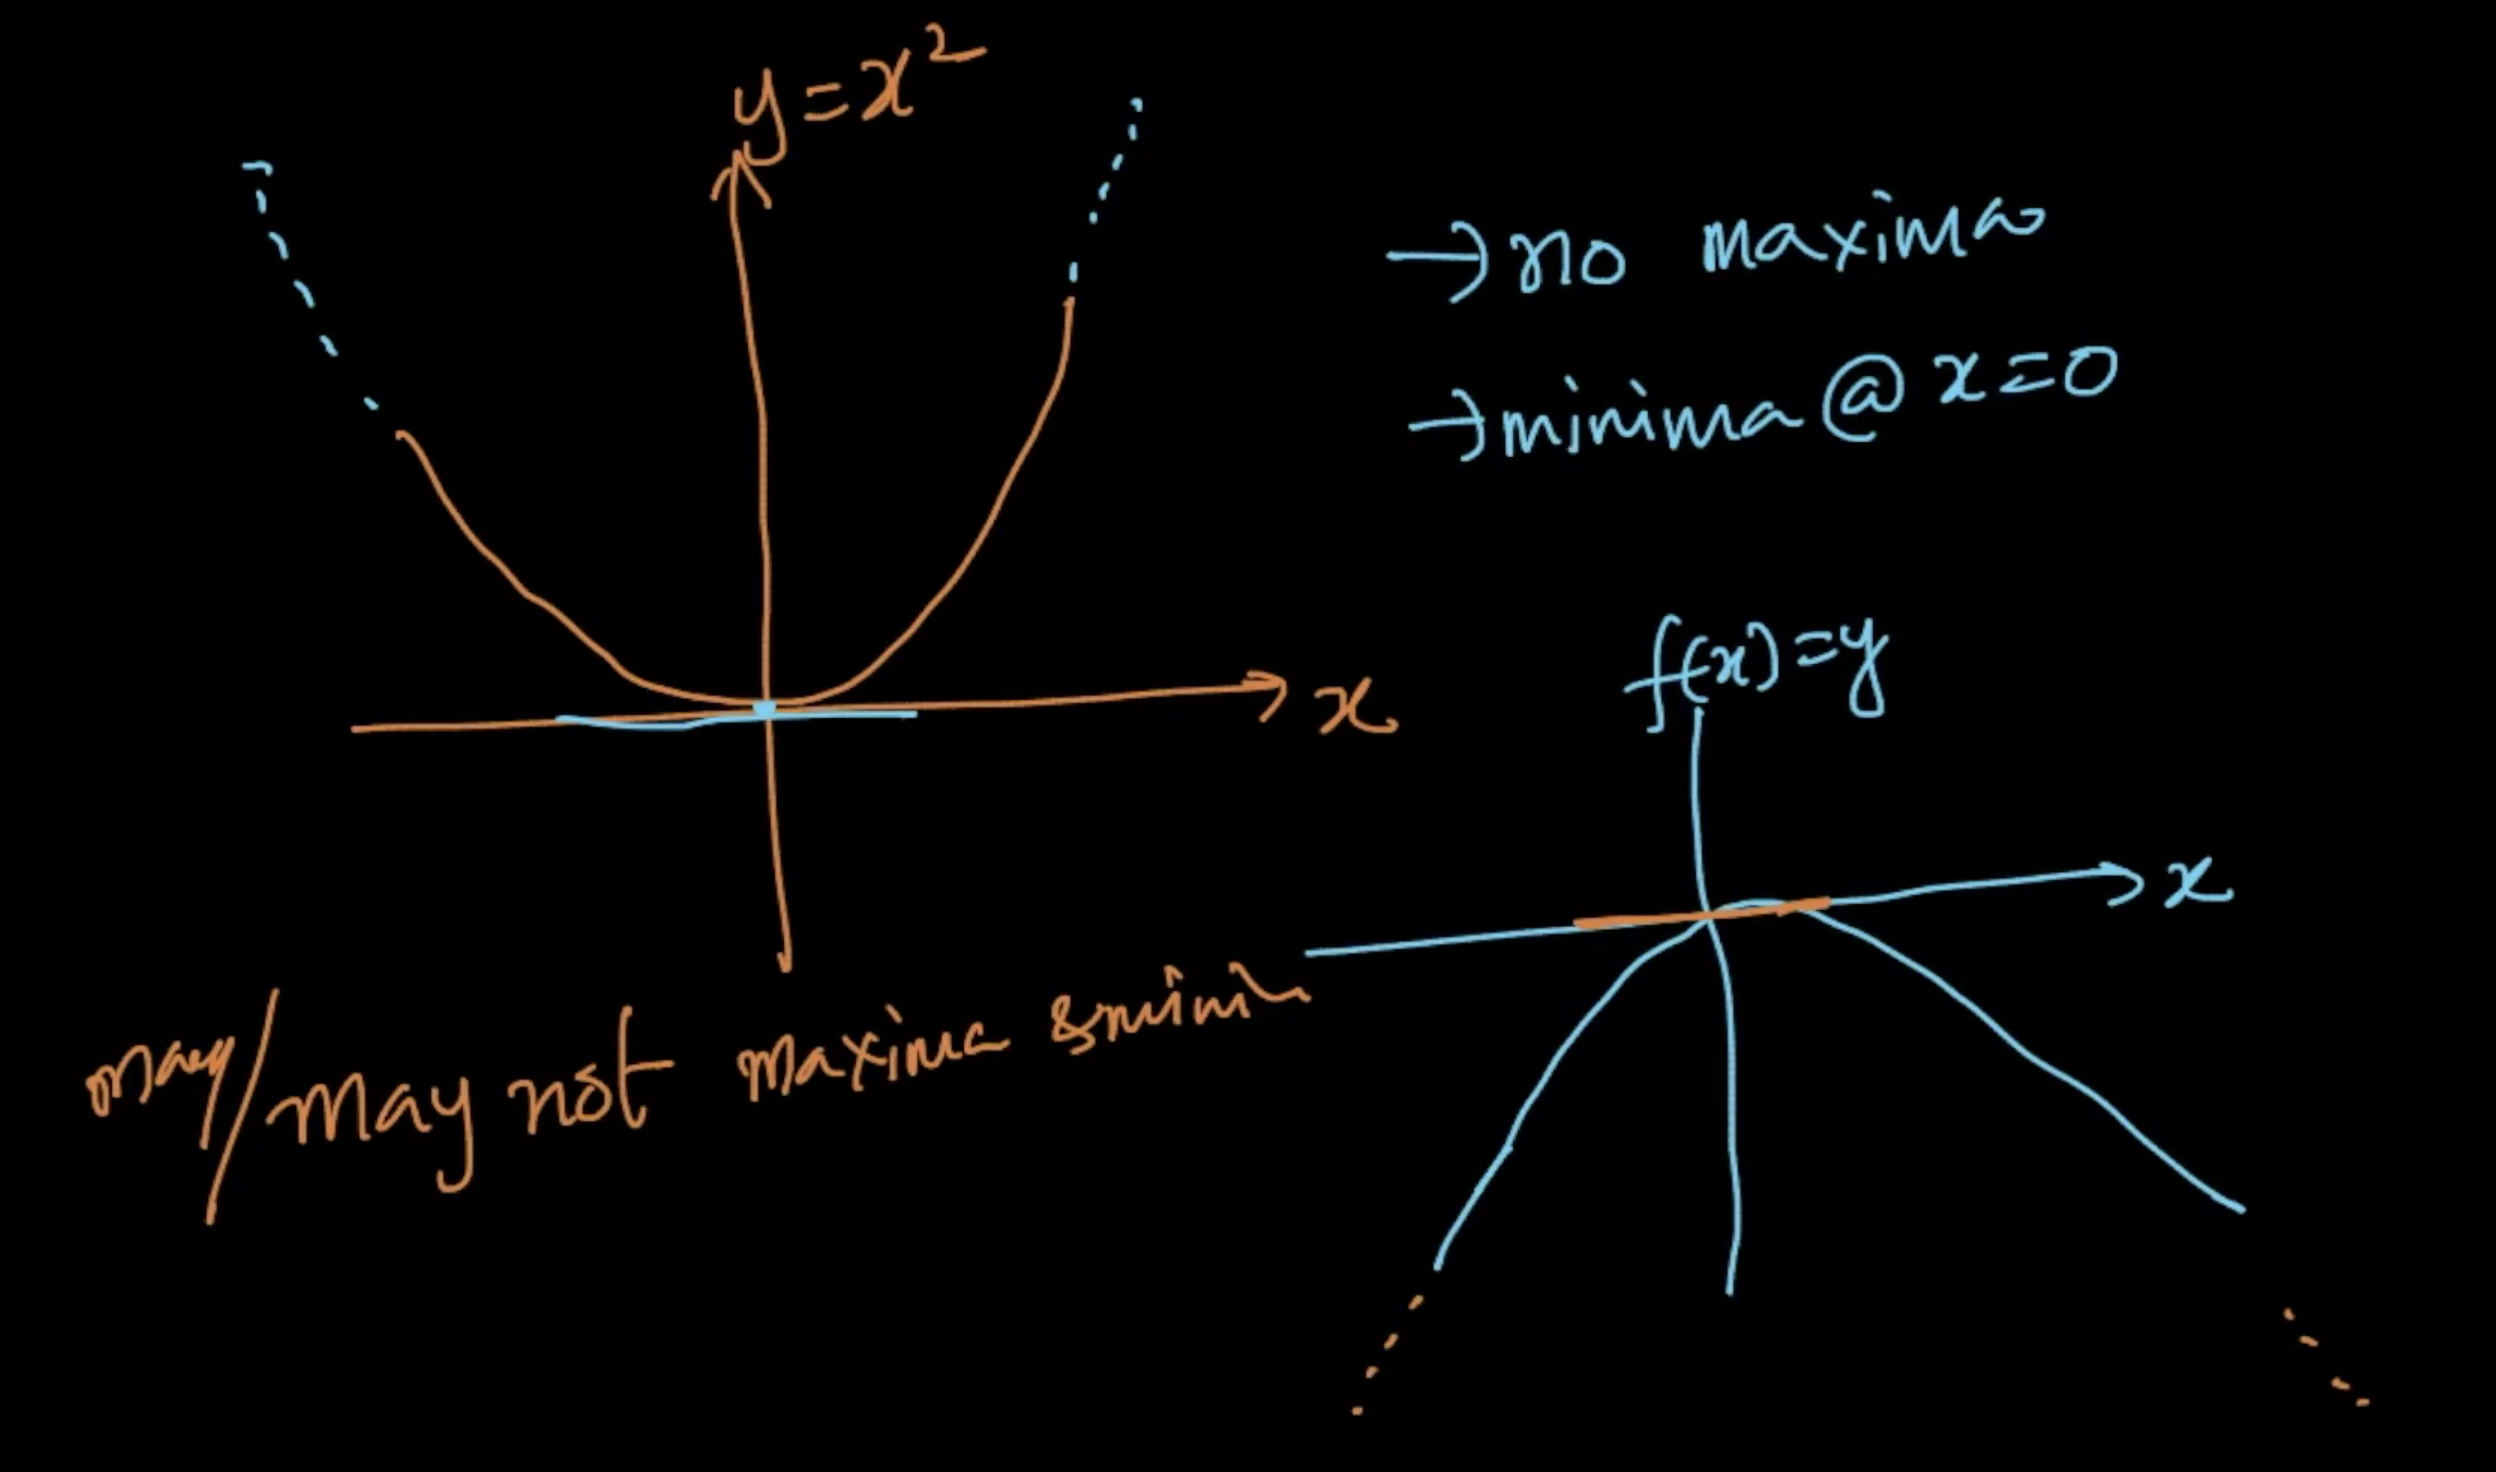 y=x²
→ no maxima
→ minima @ x=0
x
f(x)=y
x
may/may not maxima & mini